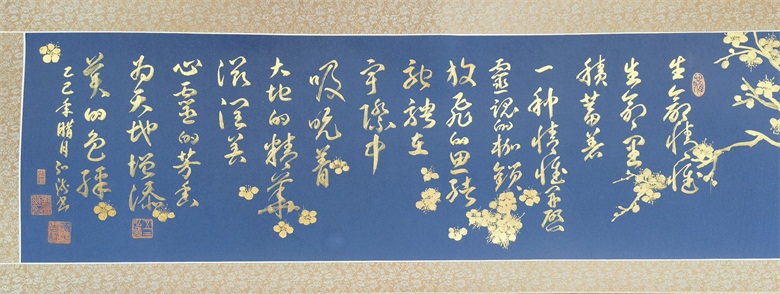 生命情懷
生命里
積蓄着
一种情懷開啟
靈魂的枷鎖
放飛的思緒
馳騁在
宇際中
吸吮着
大地的精華
滋潤美
心靈的芳香
为天地增添
美的色彩
乙巳年腊月